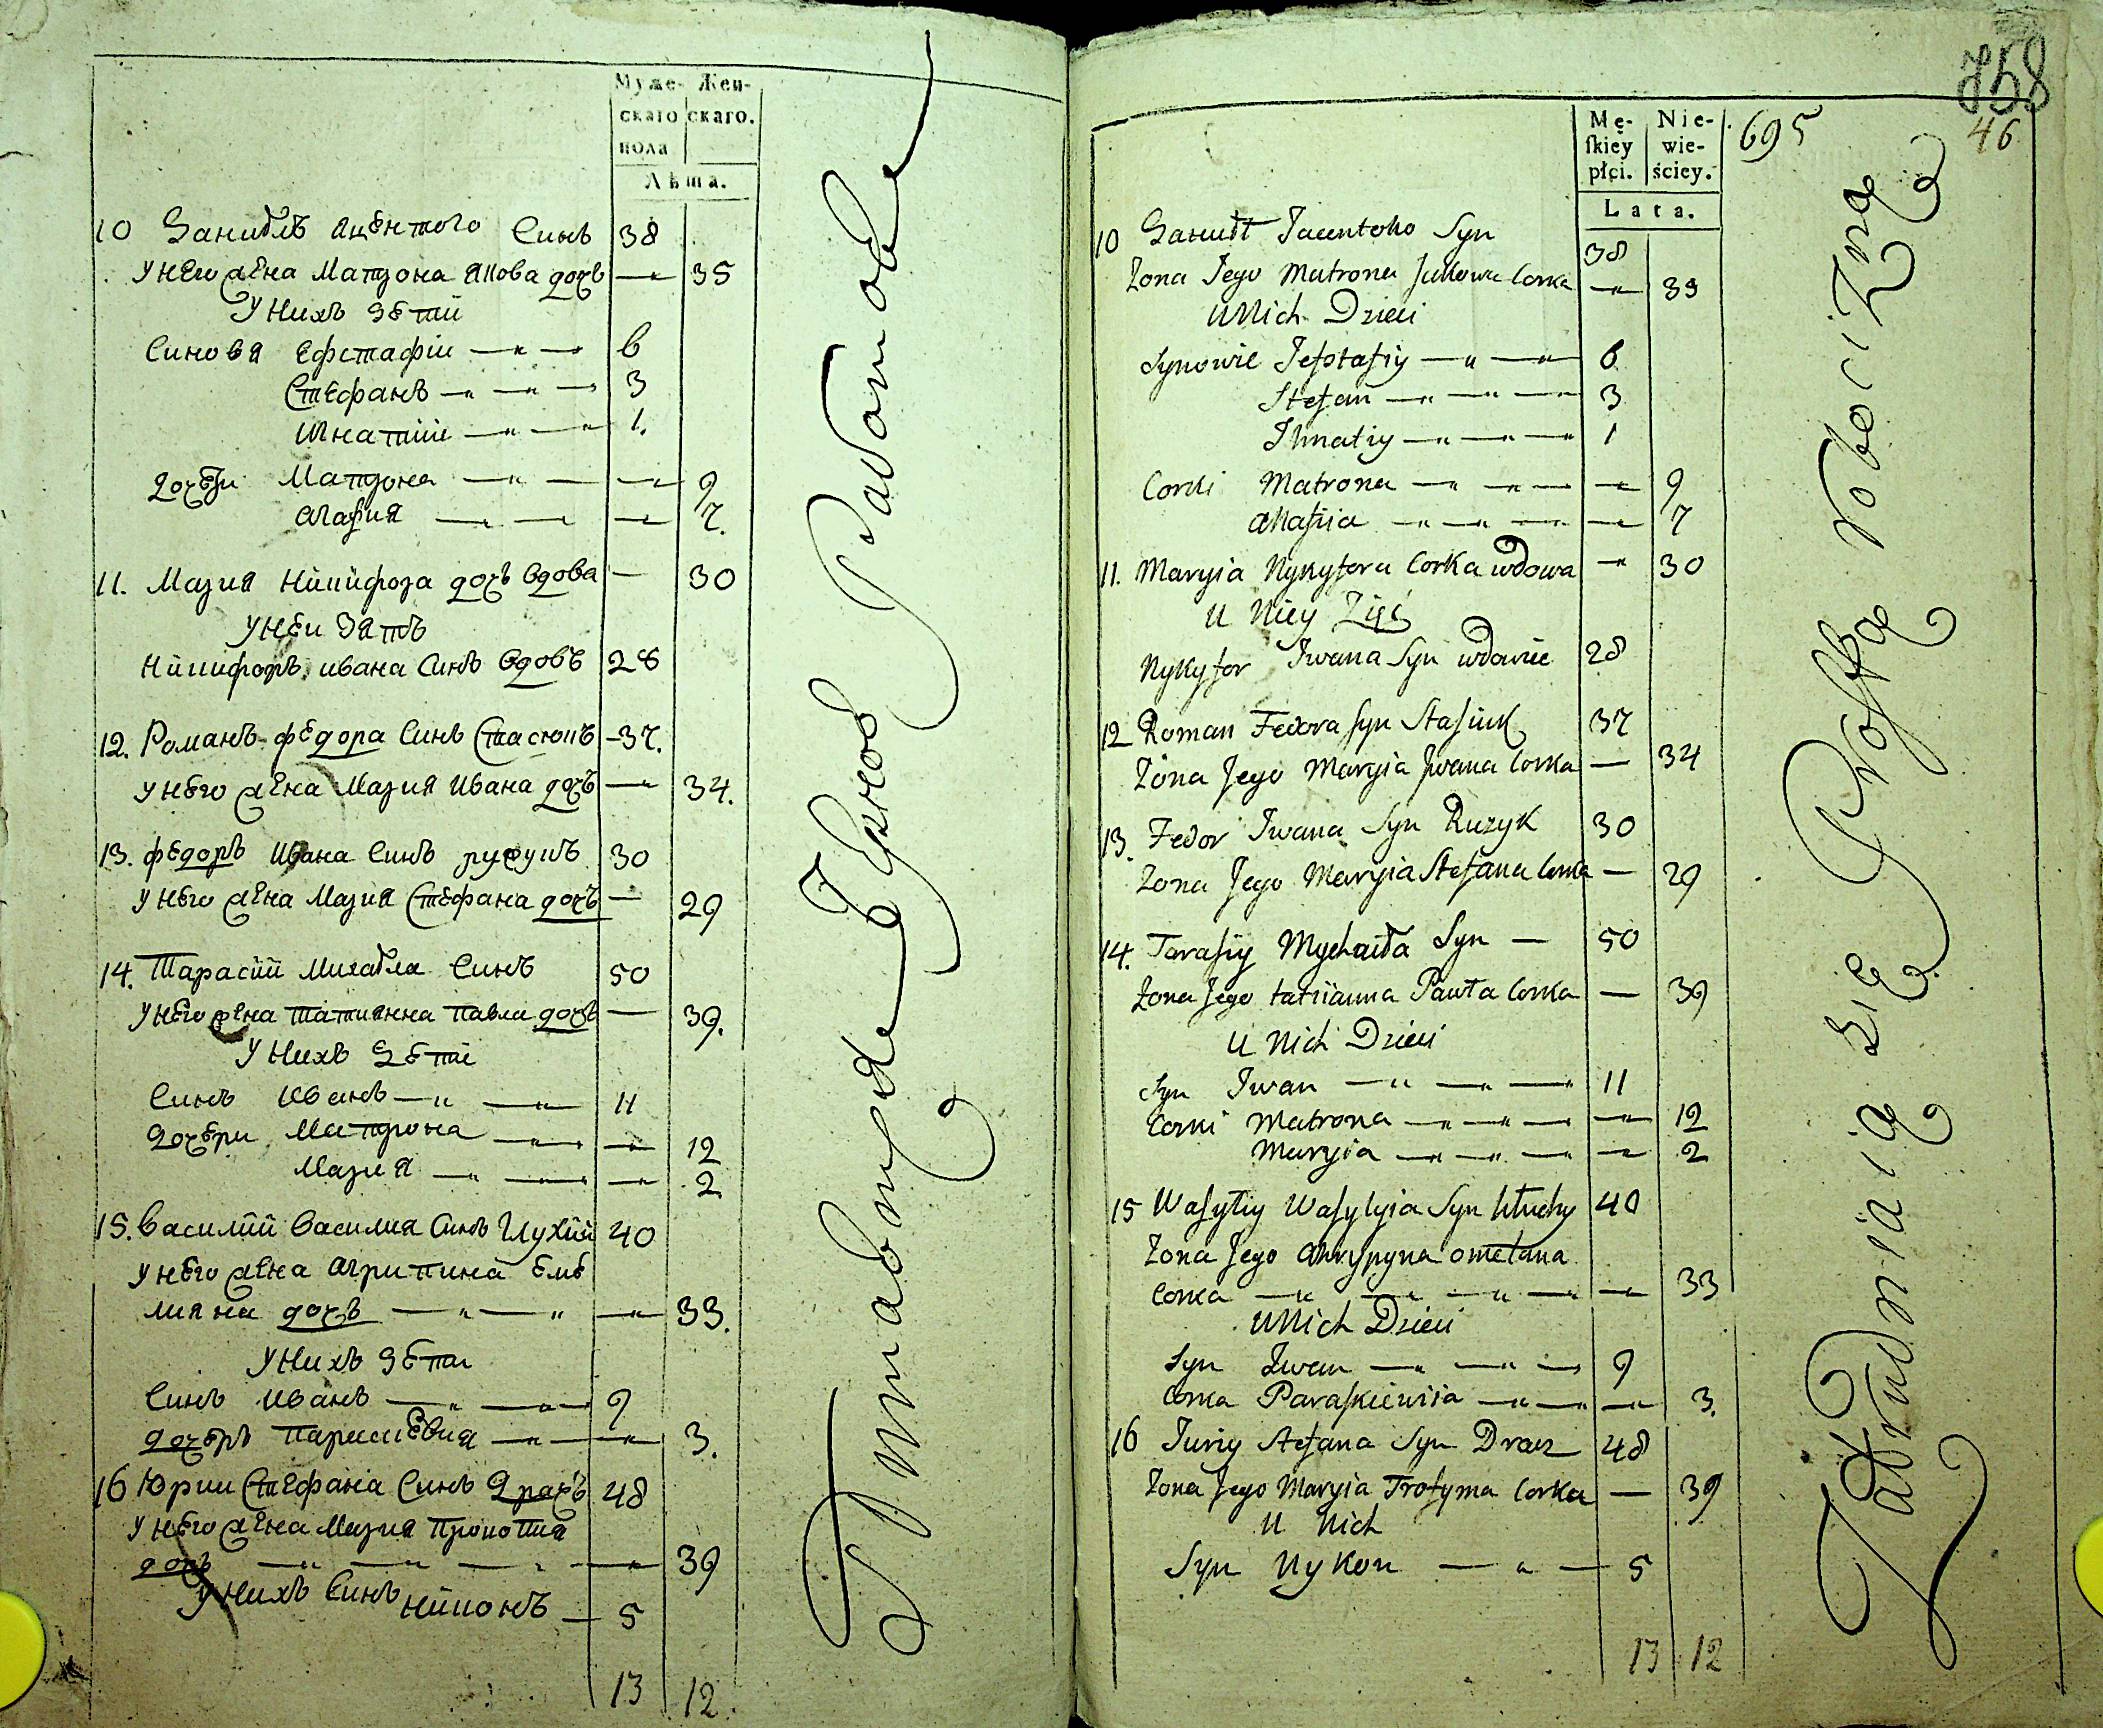 Муже- Жен-
скаго скаго.
пола
Лѣта.
10 Даниѣлъ Яцентого Синъ 38
У него жена Матрона Якова дочъ — 35
У нихъ дѣти
Синовя Ефстафiи — 6
Стефанъ — 3
Игнатiи — 1.
Дочери Матрона — 9
Агафия — 7.
11. Мария Никифора дочъ вдова — 30
У неи зять
Никифоръ Ивана Синъ вдовъ 28
12. Романъ Федора Синъ Стасюкъ 37.
У него жена Мария Ивана дочъ — 34.
13. Федоръ Ивана Синъ 30
У него жена Мария Стефана дочъ — 29
14. Тарасiй Михаѣла Синъ 50
У него жена Татиянна Павла дочъ — 39.
У нихъ дѣти
Синъ Иванъ — 11
Дочери Матрона — 12
Мария — 2
15. Василiй Василия Синъ Глухiй 40
У него жена Агрипина Еме
лияна дочъ — 33.
У нихъ дѣти
Синъ Иванъ — 9
Дочеръ Параскевия — 3.
16 Юрии Стефана Синъ Драчъ 48
У него жена Мария
дочъ — 39
У нихъ Синъ Никонъ — 5
13 12.
758
46
695
Mę- Nie-
ſkiey wie-
płci. ściey.
Lata.
10 Daniił Jacentoho Syn 38
Zona Jego Matrona Jakowa Corka — 35
U Nich Dzieci
Synowie Jefstafiy — 6
Stefan — 3
Ihnatiy — 1
Corki Matrona — 9
Ahafiia — 7
11. Maryia Nykyfora Corka wdowa — 30
U Niey Zięć
Nykyfor Iwana Syn wdowiec 28
12 Roman Fedora Syn Stasiuk 37
Zona Jego Maryia Iwana Corka — 34
13. Fedor Iwana Syn Ruzyk 30
Zona Jego Maryia Stefana Corka — 29
14. Tarasiy Mychaiła Syn — 50
Zona Jego tatiianna Pawła Corka — 39
U Nich Dzieci
Syn Iwan — 11
Corki Matrona — 12
Maryia — 2
15 Wasyliy Wasylyia Syn hłuchy 40
Zona Jego Ahrypyna omelana
Corka — 33
U Nich Dzieci
Syn Iwan — 9
Corka Paraskiewiia — 3.
16 Juriy Stefana Syn Dracz 48
Zona Jego Maryia Corka — 39
U Nich
Syn Nykon — 5
13 12
Zatrudniaią się Prostą robocizną